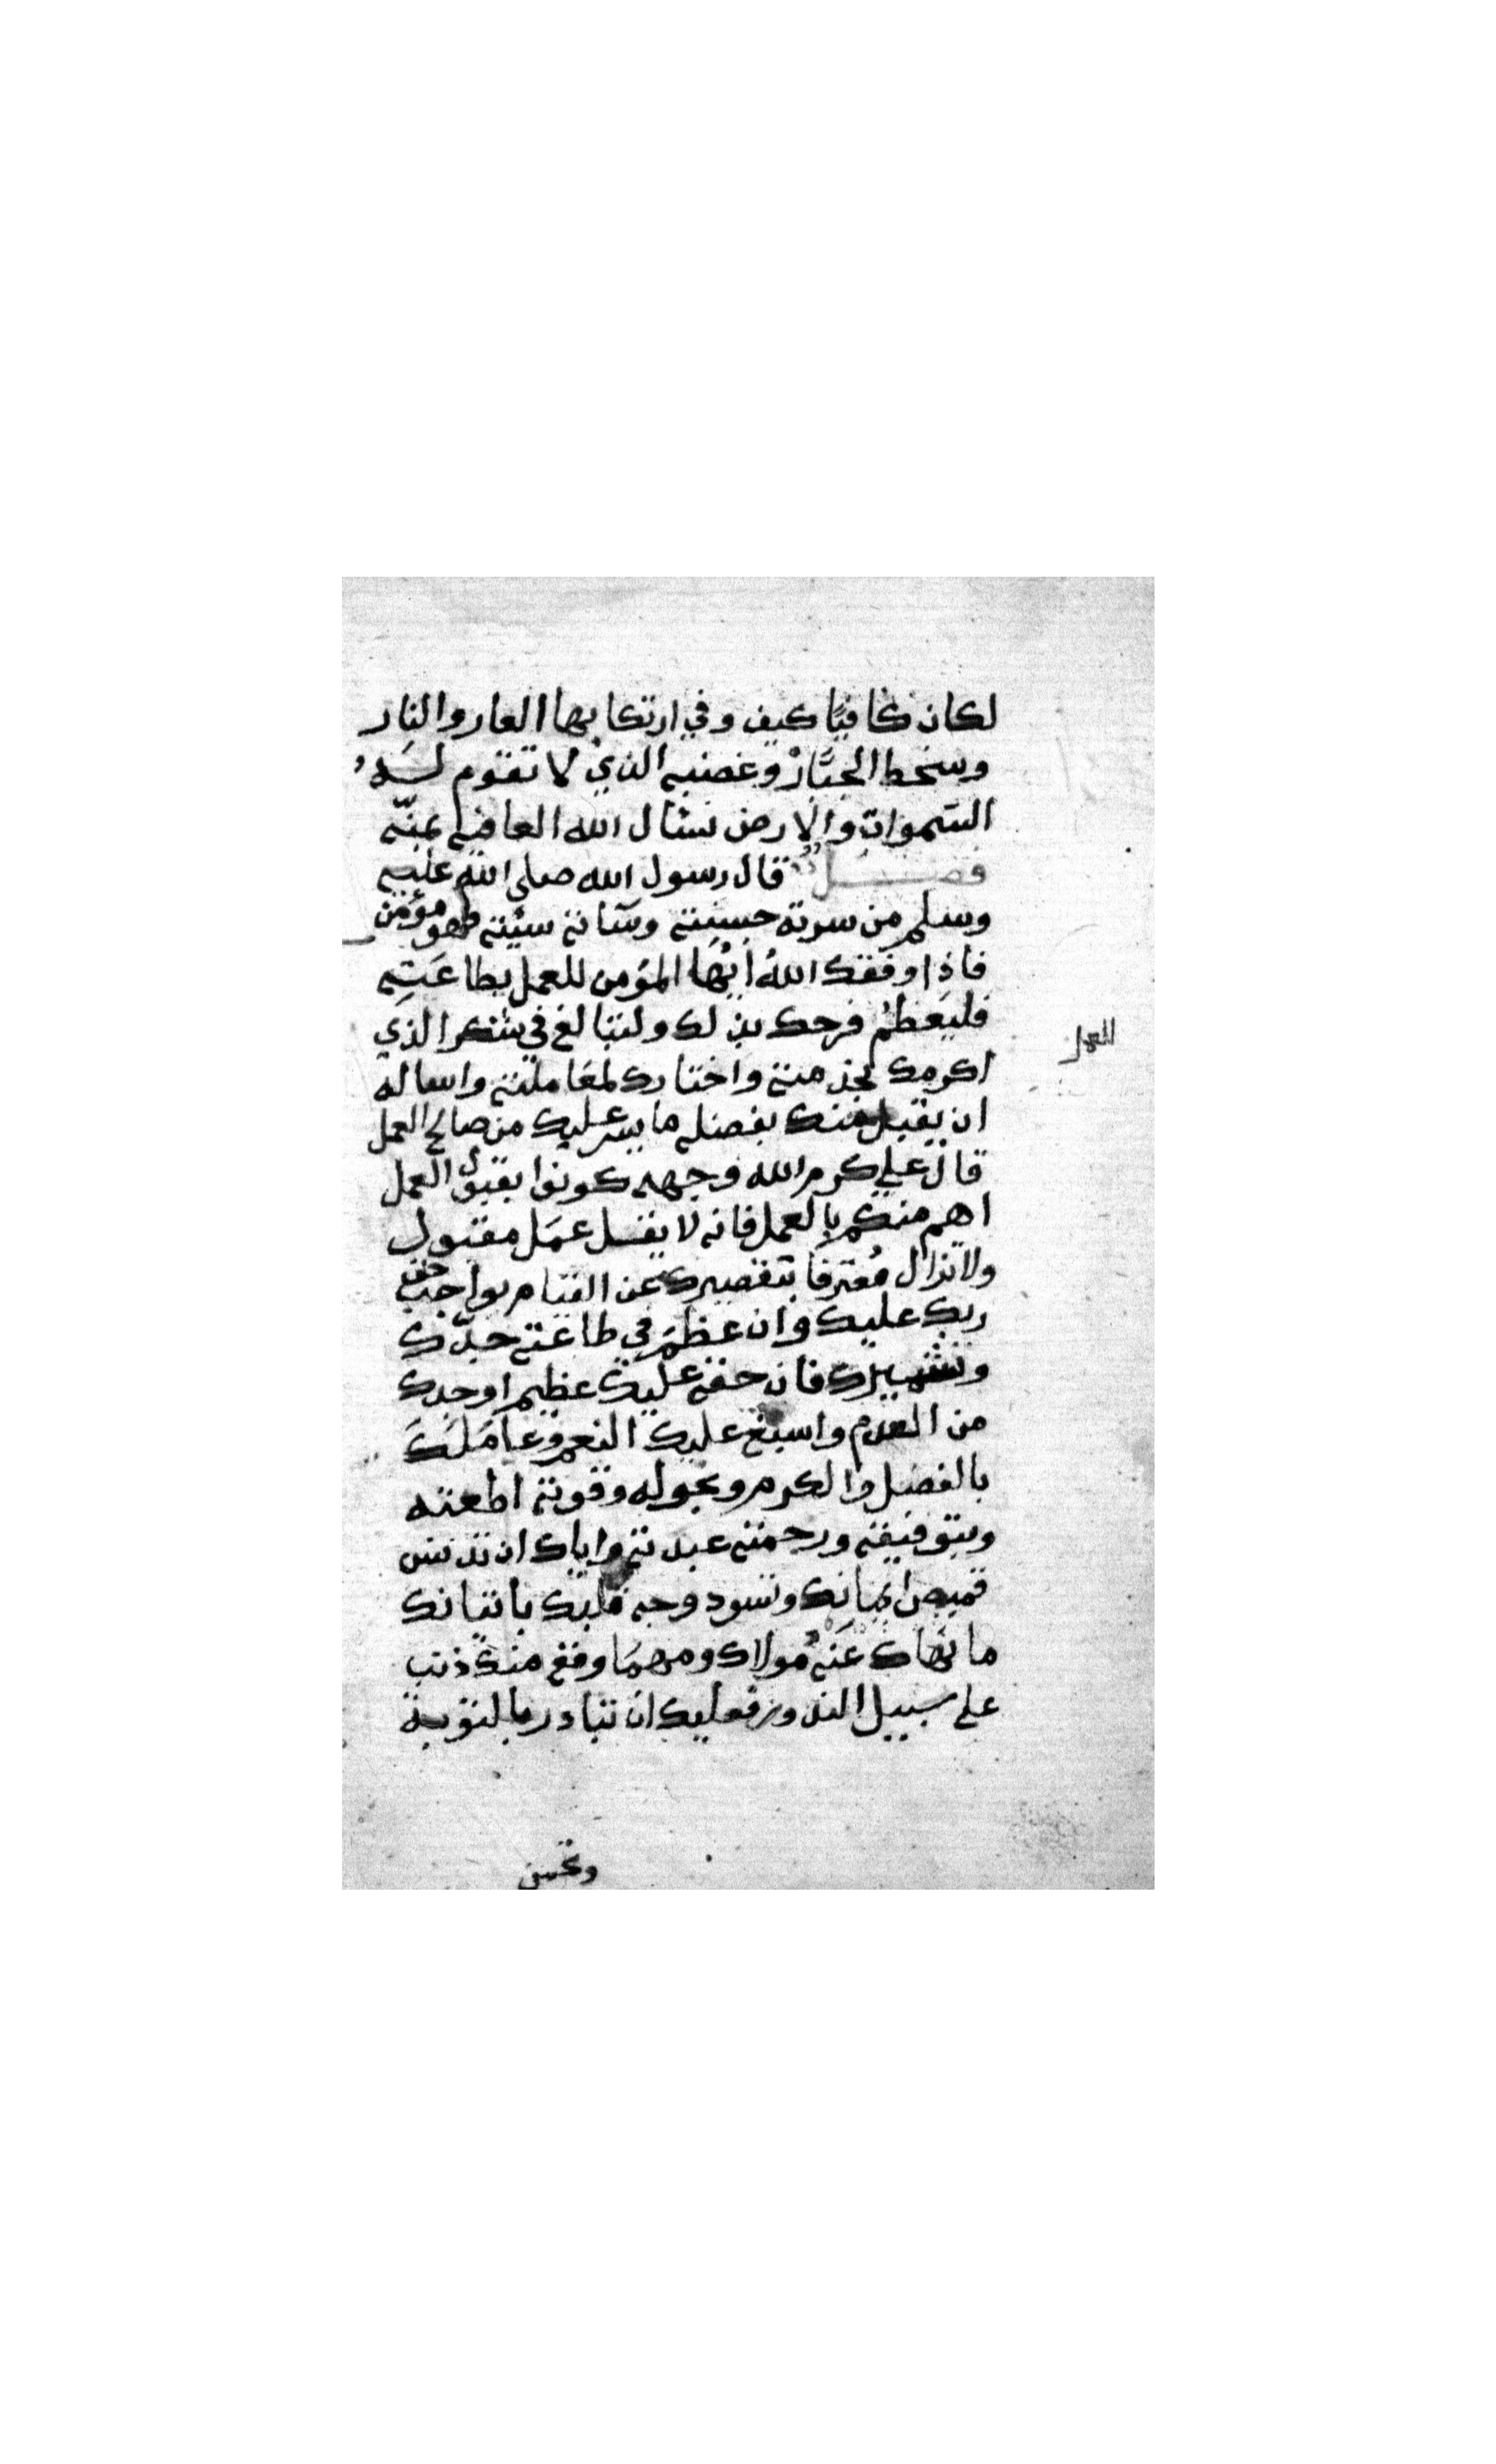 لكان كافيًا كيف وفي ارتكابها العار والنار
وسخط الجبَّار وغضبه الذي لا تقوم لَهُ
السّموات والارض نسأل الله العافية بمنّه
فصل قال رسول الله صلى الله عليه
وسلم من سرته حسنته وسآته سيئته فهو مؤمن
فاذا وفقك اللهُ ايُّها المؤمن للعمل بطاعَتِه
فليَعظمْ فرحك بذلك ولتبالغ في شكر الذي
اكرمك بخدمته واختارك لمعَاملته واساله
ان يقبل منك بفضله ما يسر عليك من صالح العمل
قال علي كرم الله وجهه كونوا بقبول العمل
اهم منكم بالعمل فانه لا يقل عمَل مقبول
ولا تزال مُعترفا بتقصيرك عن القيام بواجب حق
ربك عليك وان عظمَ في طاعته جدّك
وتشميرك فان حقه عليك عظيم اوجدك
من العدم واسبغ عليك النعم وعَامَلَكَ
بالفضل والكرم وبحوله وقوته اطعته
وبتوفيقه ورحمته عبدته واياك ان تدنس
قميص ايمانك وتسود وجه قلبك باتيانك
ما نهاك عَنْهُ مولاك ومهمَا وقع منك ذنب
على سبيل الندور فعليك ان تبادر بالتوبة
وتحسن